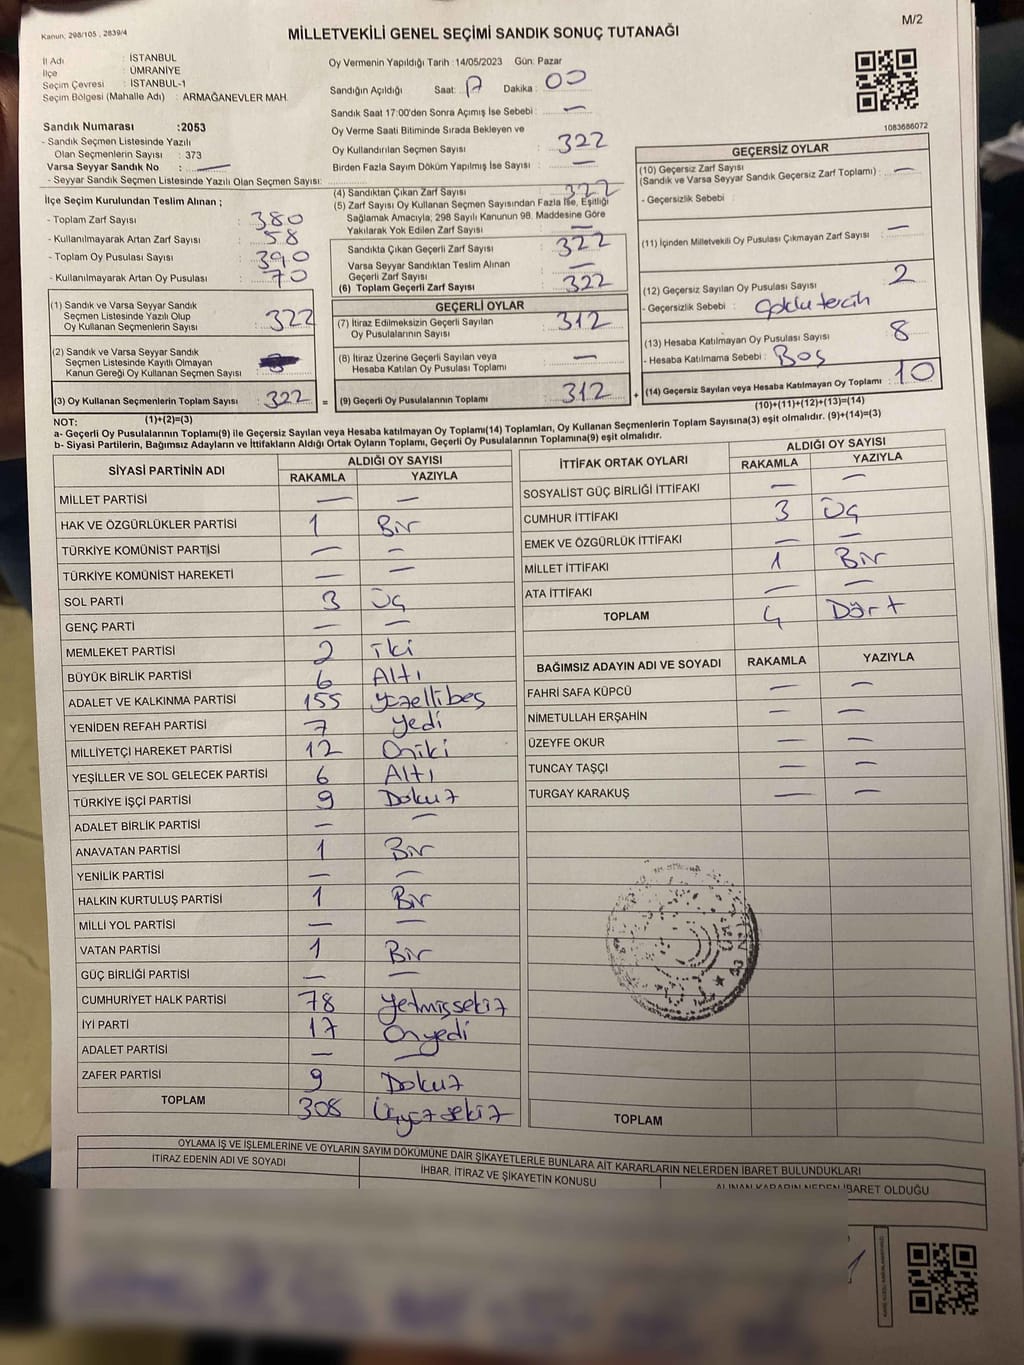 Kanun, 298/105 , 2839/4
MİLLETVEKİLİ GENEL SEÇİMİ SANDIK SONUÇ TUTANAĞI
M/2
İl Adı : İSTANBUL
İlçe : ÜMRANİYE
Seçim Çevresi : İSTANBUL-1
Seçim Bölgesi (Mahalle Adı) : ARMAĞANEVLER MAH.
Oy Vermenin Yapıldığı Tarih :14/05/2023 Gün: Pazar
Sandığın Açıldığı Saat: 17 Dakika: 00
Sandık Saat 17:00'den Sonra Açımış İse Sebebi : —
Oy Verme Saati Bitiminde Sırada Bekleyen ve
Oy Kullandırılan Seçmen Sayısı : 322
Birden Fazla Sayım Döküm Yapılmış İse Sayısı : —
1083686072
Sandık Numarası :2053
- Sandık Seçmen Listesinde Yazılı
Olan Seçmenlerin Sayısı : 373
Varsa Seyyar Sandık No : —
- Seyyar Sandık Seçmen Listesinde Yazılı Olan Seçmen Sayısı:
İlçe Seçim Kurulundan Teslim Alınan ;
- Toplam Zarf Sayısı : 380
- Kullanılmayarak Artan Zarf Sayısı : 58
- Toplam Oy Pusulası Sayısı : 390
- Kullanılmayarak Artan Oy Pusulası : 70
(1) Sandık ve Varsa Seyyar Sandık
Seçmen Listesinde Yazılı Olup
Oy Kullanan Seçmenlerin Sayısı : 322
(2) Sandık ve Varsa Seyyar Sandık
Seçmen Listesinde Kayıtlı Olmayan
Kanun Gereği Oy Kullanan Seçmen Sayısı :
(3) Oy Kullanan Seçmenlerin Toplam Sayısı : 322 =
(1)+(2)=(3)
(4) Sandıktan Çıkan Zarf Sayısı : 322
(5) Zarf Sayısı Oy Kullanan Seçmen Sayısından Fazla İse, Eşitliği
Sağlamak Amacıyla; 298 Sayılı Kanunun 98. Maddesine Göre
Yakılarak Yok Edilen Zarf Sayısı : —
Sandıkta Çıkan Geçerli Zarf Sayısı : 322
Varsa Seyyar Sandıktan Teslim Alınan
Geçerli Zarf Sayısı : —
(6) Toplam Geçerli Zarf Sayısı : 322
GEÇERLİ OYLAR
(7) İtiraz Edilmeksizin Geçerli Sayılan
Oy Pusulalarının Sayısı : 312
(8) İtiraz Üzerine Geçerli Sayılan veya
Hesaba Katılan Oy Pusulası Toplamı : —
(9) Geçerli Oy Pusulalarının Toplamı : 312 +
GEÇERSİZ OYLAR
(10) Geçersiz Zarf Sayısı
(Sandık ve Varsa Seyyar Sandık Geçersiz Zarf Toplamı) : —
- Geçersizlik Sebebi :
(11) İçinden Milletvekili Oy Pusulası Çıkmayan Zarf Sayısı : —
(12) Geçersiz Sayılan Oy Pusulası Sayısı : 2
- Geçersizlik Sebebi : Çoklu tercih
(13) Hesaba Katılmayan Oy Pusulası Sayısı : 8
- Hesaba Katılmama Sebebi : Boş
(14) Geçersiz Sayılan veya Hesaba Katılmayan Oy Toplamı : 10
(10)+(11)+(12)+(13)=(14)
NOT:
a- Geçerli Oy Pusulalarının Toplamı(9) ile Geçersiz Sayılan veya Hesaba katılmayan Oy Toplamı(14) Toplamları, Oy Kullanan Seçmenlerin Toplam Sayısına(3) eşit olmalıdır. (9)+(14)=(3)
b- Siyasi Partilerin, Bağımsız Adayların ve İttifakların Aldığı Ortak Oyların Toplamı, Geçerli Oy Pusulalarının Toplamına(9) eşit olmalıdır.
SİYASİ PARTİNİN ADI ALDIĞI OY SAYISI
RAKAMLA YAZIYLA
MİLLET PARTİSİ — —
HAK VE ÖZGÜRLÜKLER PARTİSİ 1 Bir
TÜRKİYE KOMÜNİST PARTİSİ — —
TÜRKİYE KOMÜNİST HAREKETİ — —
SOL PARTİ 3 Üç
GENÇ PARTİ — —
MEMLEKET PARTİSİ 2 İki
BÜYÜK BİRLİK PARTİSİ 6 Altı
ADALET VE KALKINMA PARTİSİ 155 Yüzellibeş
YENİDEN REFAH PARTİSİ 7 Yedi
MİLLİYETÇİ HAREKET PARTİSİ 12 Oniki
YEŞİLLER VE SOL GELECEK PARTİSİ 6 Altı
TÜRKİYE İŞÇİ PARTİSİ 9 Dokuz
ADALET BİRLİK PARTİSİ — —
ANAVATAN PARTİSİ 1 Bir
YENİLİK PARTİSİ — —
HALKIN KURTULUŞ PARTİSİ 1 Bir
MİLLİ YOL PARTİSİ — —
VATAN PARTİSİ 1 Bir
GÜÇ BİRLİĞİ PARTİSİ — —
CUMHURİYET HALK PARTİSİ 78 Yetmişsekiz
İYİ PARTİ 17 Onyedi
ADALET PARTİSİ — —
ZAFER PARTİSİ 9 Dokuz
TOPLAM 308 Üçyüzsekiz
İTTİFAK ORTAK OYLARI ALDIĞI OY SAYISI
RAKAMLA YAZIYLA
SOSYALİST GÜÇ BİRLİĞİ İTTİFAKI — —
CUMHUR İTTİFAKI 3 Üç
EMEK VE ÖZGÜRLÜK İTTİFAKI — —
MİLLET İTTİFAKI 1 Bir
ATA İTTİFAKI — —
TOPLAM 4 Dört
BAĞIMSIZ ADAYIN ADI VE SOYADI RAKAMLA YAZIYLA
FAHRİ SAFA KÜPCÜ — —
NİMETULLAH ERŞAHİN — —
ÜZEYFE OKUR — —
TUNCAY TAŞÇI — —
TURGAY KARAKUŞ — —
TOPLAM
OYLAMA İŞ VE İŞLEMLERİNE VE OYLARIN SAYIM DÖKÜMÜNE DAİR ŞİKAYETLERLE BUNLARA AİT KARARLARIN NELERDEN İBARET BULUNDUKLARI
İTİRAZ EDENİN ADI VE SOYADI İHBAR, İTİRAZ VE ŞİKAYETİN KONUSU ALINAN KARARIN NEDEN İBARET OLDUĞU